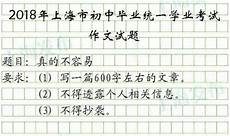 2018年上海市初中毕业统一学业考试
作文试题
题目：真的不容易
要求：(1) 写一篇600字左右的文章。
(2) 不得透露个人相关信息。
(3) 不得抄袭。